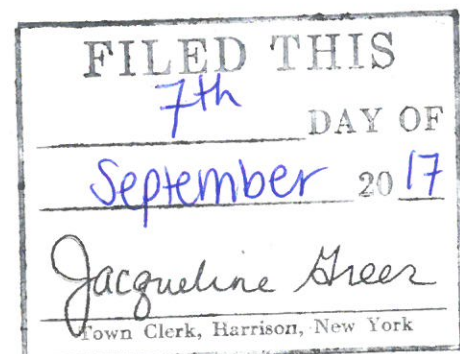 FILED THIS
7th
DAY OF
September 2017
Jacqueline Greer
Town Clerk, Harrison, New York